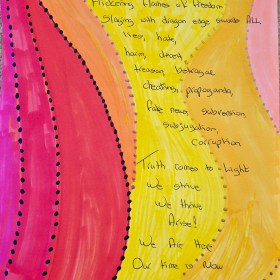 Flickering flames of freedom
Slaying with dragon edge swords ALL
lies, hate,
harm, deceit,
treason, betrayal
cheating, propaganda,
fake news, subversion
subjugation,
corruption
Truth comes to light
We strive
We thrive
Arise!
We Are Here
Our time is Now